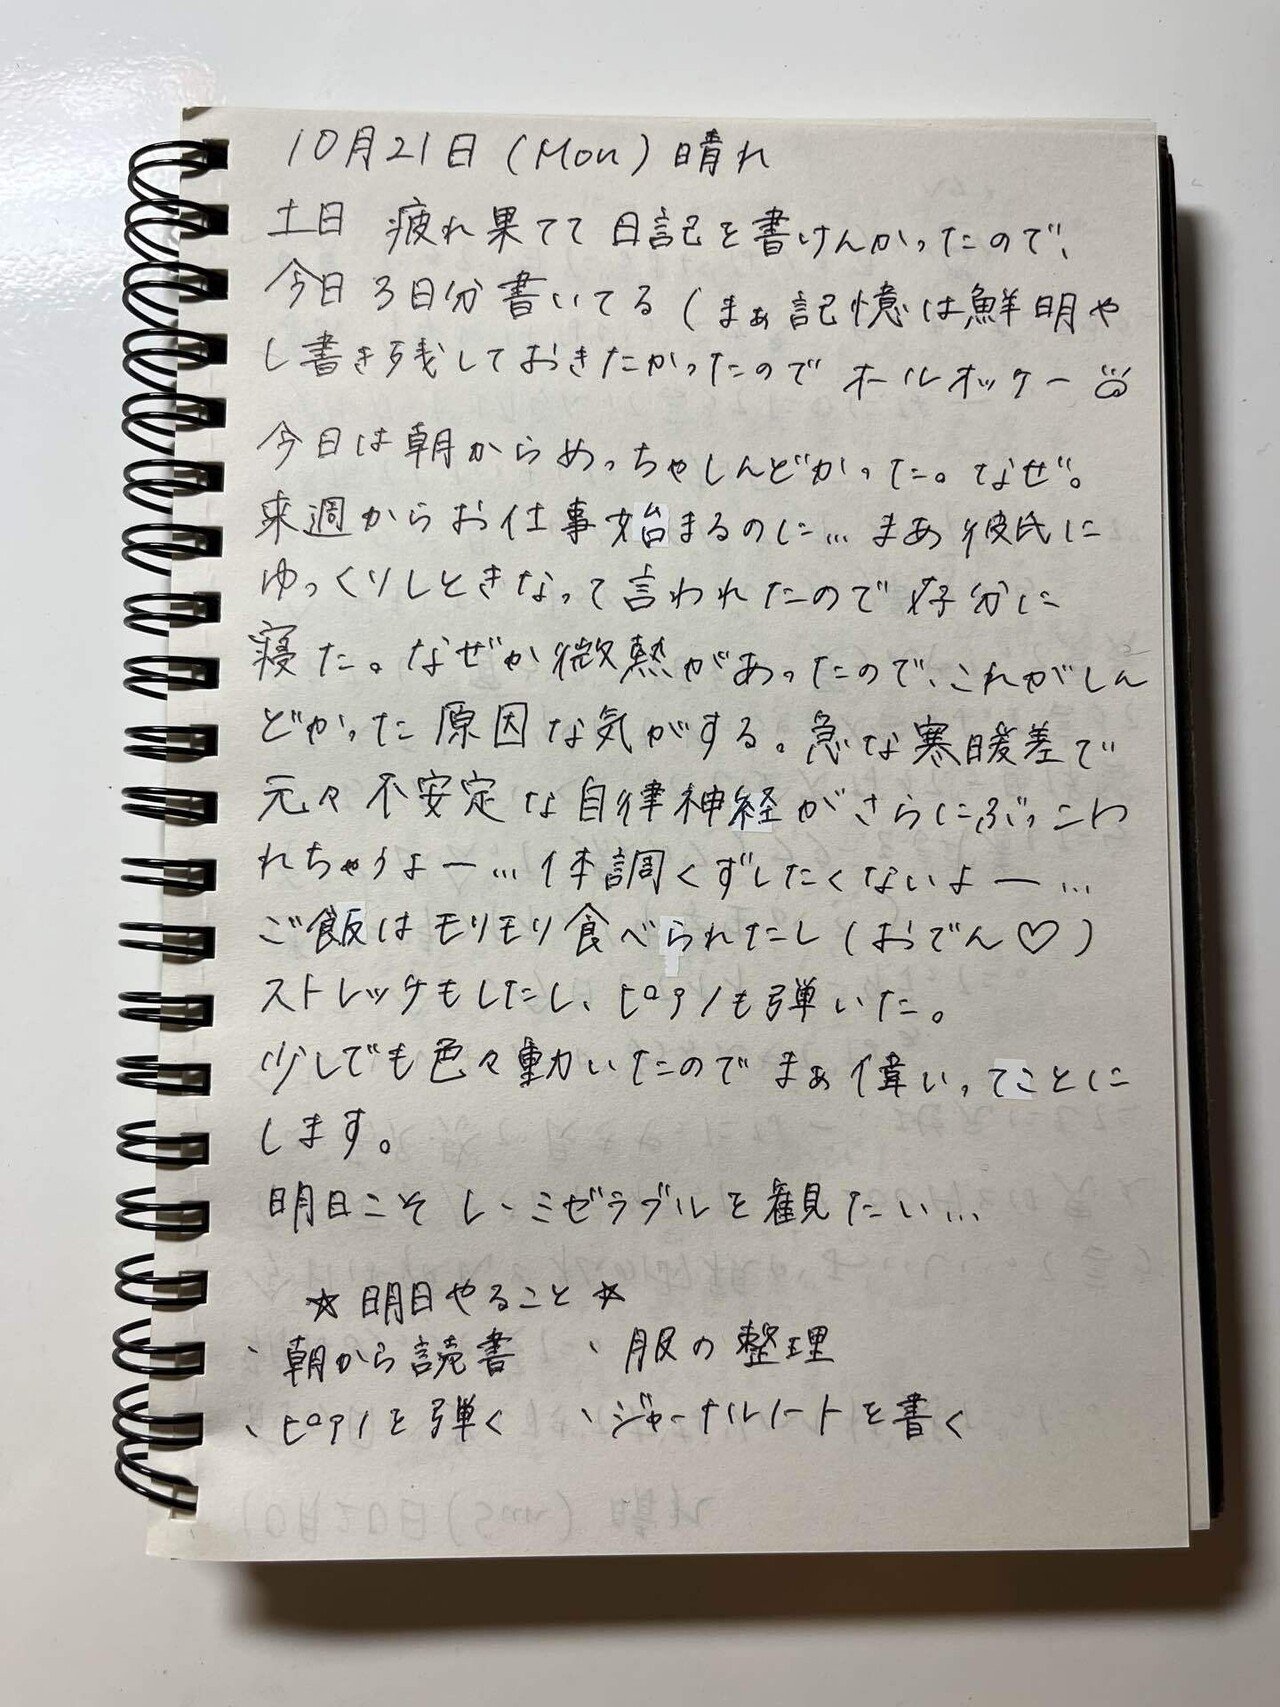 10月21日(Mon)晴れ
土日 疲れ果てて日記を書けんかったので、
今日3日分書いてる(まぁ記憶は鮮明や
し書き残しておきたかったので オールオッケー
今日は朝からめっちゃしんどかった。なぜ。
来週からお仕事始まるのに…まあ彼氏に
ゆっくりしときなって言われたので 好分に
寝た。なぜか微熱があったので、これがしん
どかった原因な気がする。急な寒暖差で
元々不安定な自律神経がさらにぶっこわ
れちゃうよー…体調くずしたくないよー…
ご飯はモリモリ食べられたし(おでん♡)
ストレッチもしたし、ピアノも弾いた。
少しでも色々動いたのでまぁ偉いってことに
します。
明日こそ レ・ミゼラブルを観たい…
☆明日やること☆
、朝から読書 、服の整理
、ピアノを弾く 、ジャーナルノートを書く
10月20日(Sun)晴れ